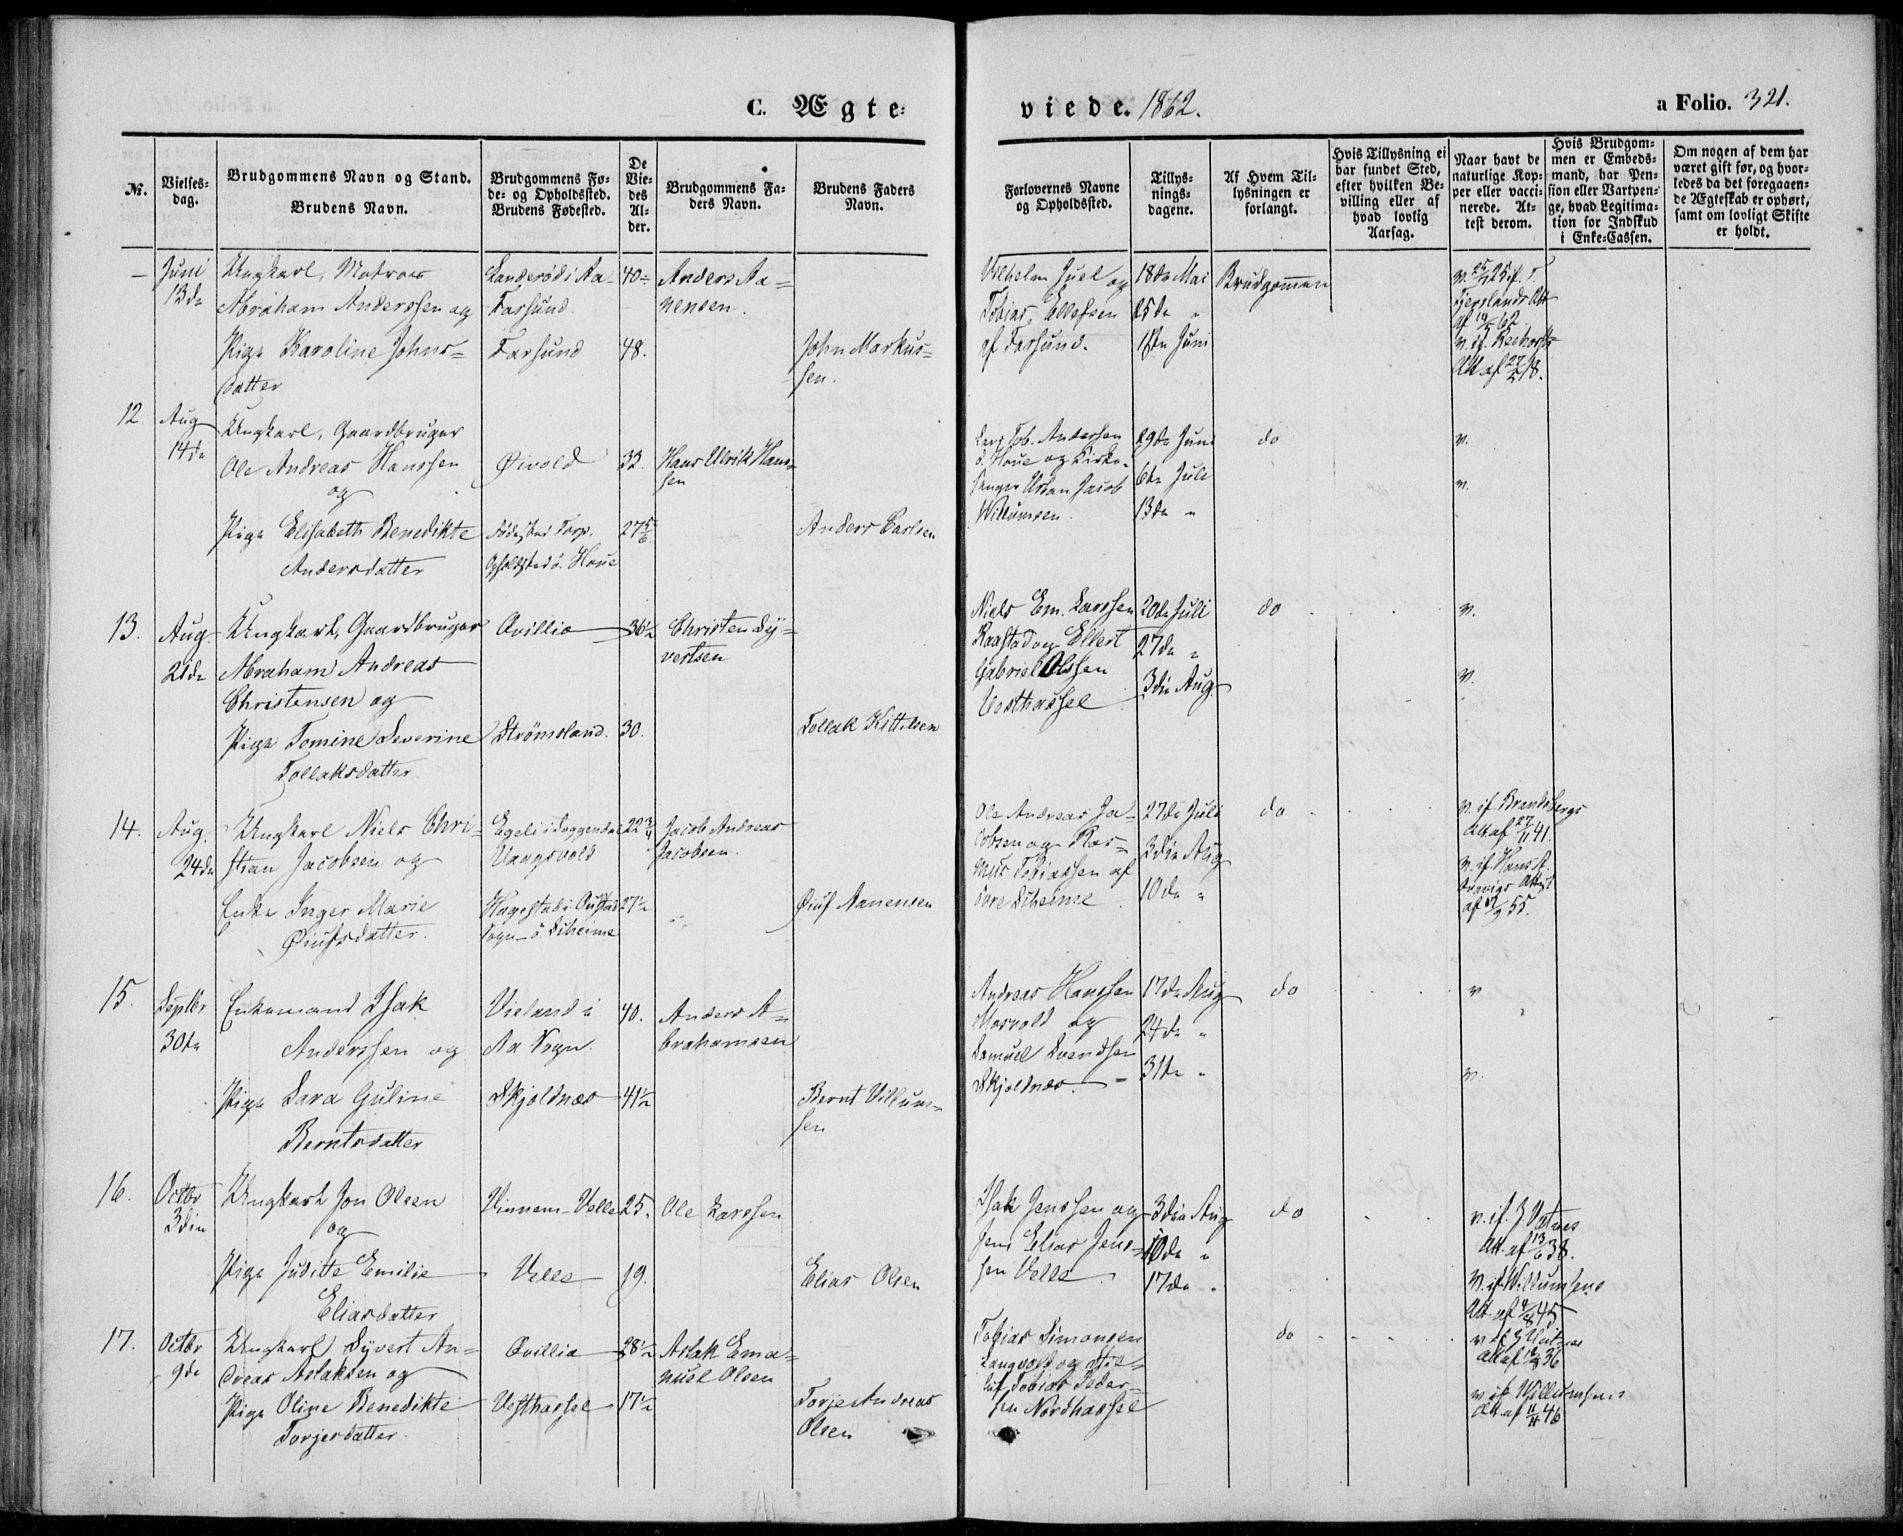 C. Ægte-
viede. 1862.
a Folio. 321.
№.
Vielses-
dag.
Brudgommens Navn og Stand.
Brudens Navn.
Brudgommens Fø-
de- og Opholdssted.
Brudens Fødested.
De
Vie-
des
Al-
der.
Brudgommens Fa-
ders Navn.
Brudens Faders
Navn.
Forlovernes Navne
og Opholdssted.
Tillys-
nings-
dagene.
Af Hvem Til-
lysningen er
forlangt.
Hvis Tillysning ei
har fundet Sted,
efter hvilken Be-
villing eller af
hvad lovlig
Aarsag.
Naar havt de
naturlige Kop-
per eller vacci-
nerede. At-
test derom.
Hvis Brudgom-
men er Embeds-
mand, har Pen-
sion eller Vartpen-
ge, hvad Legitima-
tion for Indskud
i Enke-Cassen.
Om nogen af dem har
været gift før, og hvor-
ledes da det foregaaen-
de Ægteskab er ophørt,
samt om lovligt Skifte
er holdt.
— Juni
13de
Ungkarl, Matros
Abraham Anderssen og
Pige Karoline Johns-
datter
Landerød i Aa
Farsund.
Farsund
40
48.
Anders Aa-
nensen.
John Markus-
sen.
Vilhelm Juel og
Tobias Ellefsen
af Farsund.
18de Mai
25de "
1ste Juni
Brudgommen
12.
Aug
14de
Ungkarl, Gaardbruger
Ole Andreas Hanssen
og
Pige Elisabeth Benedikte
Andersdatter
Øivold
Fødested Torp.
Opholdssted ö. Haue
32.
27 5/6
Hans Ulrik Hans-
sen
Anders Carlsen
Lars Tob. Andersen
ö. Haue og Kirke-
sanger Urban Jacob
Willumsen.
29de Juni
6te Juli
13de "
do
v.
v.
13.
Aug
21de
Ungkarl, Gaardbruger
Abraham Andreas
Christensen og
Pige Tomine Severine
Tollaksdatter.
Qvillio
Strømsland.
36 1/2
30.
Christen Sy-
vertsen
Tollak Kittelsen
Niels Em. Larssen
Raastad og Ellert
Gabriel Olssen
Vesthassel
20de Juli
27de "
3die Aug
do
v.
v.
14.
Aug.
24de
Ungkarl Niels Chri-
stian Jacobsen og
Enke Inger Marie
Øiufsdatter.
Egeli i Soggendal
Vangsvold
Hagestad i Austad
Sogn - ö. Diheime
22 3/4
27 1/2
Jacob Andreas
Jacobsen.
Øiuf Aanensen
Ole Andreas Ja-
cobsen og Ras-
mus Tobiassen af
övre Diheime
27de Juli
3die Aug
10de "
do
v. if. Brandsbergs
Att. af 27/11 41.
15.
Septbr
30te
Enkemand Isak
Anderssen og
Pige Sara Guline
Berntsdatter
Vieland i
Aa Sogn.
Skjoldnæs
40.
41 1/2
Anders A-
brahamsen
Bernt Villum-
sen
Andreas Hanssen
Mosvold og
Samuel Svendsen
Skjoldnæs.
17de Aug
24de "
31te "
do
v
v.
16.
Octbr
3die
Ungkarl Jon Olsen
og
Pige Juditte Emilie
Eliasdatter
Vinnem-Velle
Velle
25.
19.
Ole Larssen
Elias Olsen
Isak Jenssen og
Jens Elias Jens-
sen Velle
3die Aug
10de "
17de "
do
v. if. J. Vatnes
Att. af 13/6 38.
v. if. Willumsens
Att. af 4/8 45
17.
Octbr
9de
Ungkarl Syvert An-
dreas Aslaksen og
Pige Oline Benedikte
Torjesdatter.
Qvillio
Vesthassel
28 1/2
17 1/2
Aslak Ema-
nuel Olsen
Torje Andreas
Olsen
Tobias Simonsen
Langvold og
Tobias Peder-
sen Nordhassel
do
v. if. Willumsens
Att. af 11/11 46